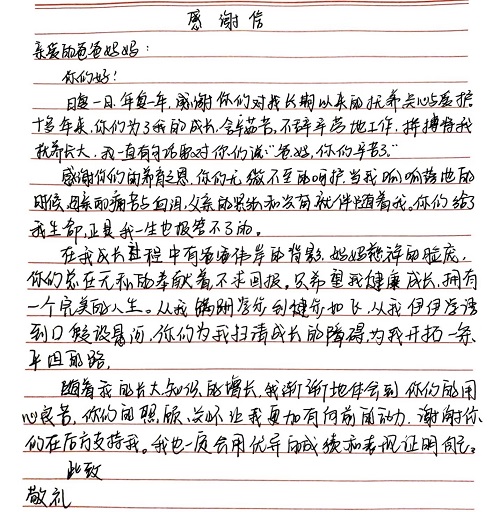 感谢信
亲爱的爸爸妈妈：
你们好！
日复一日，年复一年，感谢你们对我长期以来的抚养、关心与爱护
十多年来，你们为了我的成长，含辛茹苦，不辞辛劳地工作，拼搏将我
抚养长大，我一直有句话敢对你们说"爸妈，你们辛苦了。"
感谢你们的养育之恩，你们无微不至的呵护，当我呱呱落地的
时候，母亲的痛苦与血泪，父亲的紧张和兴奋就伴随着我。你们给了
我生命，正是我一生也报答不了的。
在我成长过程中有爸爸伟岸的背影，妈妈慈祥的脸庞，
你们总在无私的奉献着不求回报。只希望我健康成长，拥有
一个完美的人生。从我蹒跚学步到健步如飞，从我伊伊学语
到口若悬河，你们为我扫清成长的障碍，为我开拓一条
平坦的路，
随着我的长大，知识的增长，我渐渐地体会到你们的用
心良苦，你们的照顾、关怀让我更加有向前的动力，谢谢你
们在后方支持我。我也一定会用优异的成绩和表现证明自己。
此致
敬礼